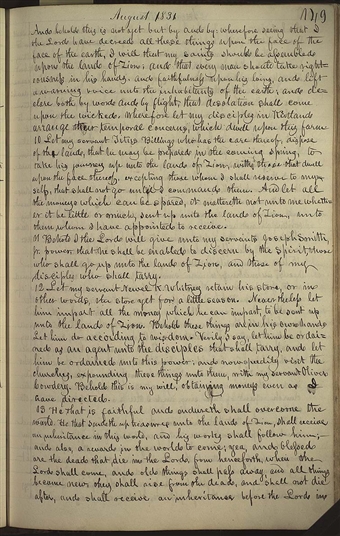 August 1831
119
And behold this is not yet but by and by: wherefore seeing that I
the Lord have decreed all these things upon the face of the
face of the earth, I will that my saints should be assembled
upon the land of Zion; and that every man should take right-
eousness in his hands, and faithfulness upon his loins, and lift
a warning voice unto the inhabitants of the earth; and de-
clare both by word and by flight, that desolation shall come
upon the wicked. Wherefore let my disciples in Kirtland
arrange their temporal concerns, which dwell upon this farm
10 Let my servant Titus Billings who has the care thereof, dispose
of the land, that he may be prepared in the coming spring, to
take his journey up unto the land of Zion, with those that dwell
upon the face thereof, excepting those whom I shall reserve to my-
self, that shall not go until I command them. And let all
the moneys which can be spared, it mattereth not unto me whether
it be little or much, sent up unto the land of Zion, unto
them whom I have appointed to receive.
11 Behold I the Lord will give unto my servant Joseph Smith,
jr. power, that he shall be enabled to discern by the Spirit, those
who shall go up unto the land of Zion, and those of my
disciples who shall tarry.
12 Let my servant Newel K. Whitney retain his store, or in
other words, the store yet for a little season. Nevertheless let
him impart all the money which he can impart, to be sent up
unto the land of Zion. Behold these things are in his own hands
Let him do according to wisdom. Verily I say, let him be ordain-
ed as an agent unto the disciples that shall tarry, and let
him be ordained unto this power; and now speedily visit the
churches, expounding these things unto them, with my servant Oliver
Cowdery. Behold this is my will, obtaining moneys even as I
have directed.
13 He that is faithful and endureth shall overcome the
world. He that sendeth up treasures unto the land of Zion, shall receive
an inheritance in this world, and his works shall follow him;
and also, a reward in the world to come; yea, and blessed
are the dead that die in the Lord, from henceforth, when the
Lord shall come, and old things shall pass away, and all things
become new, they shall rise from the dead, and shall not die
after, and shall receive an inheritance before the Lord in